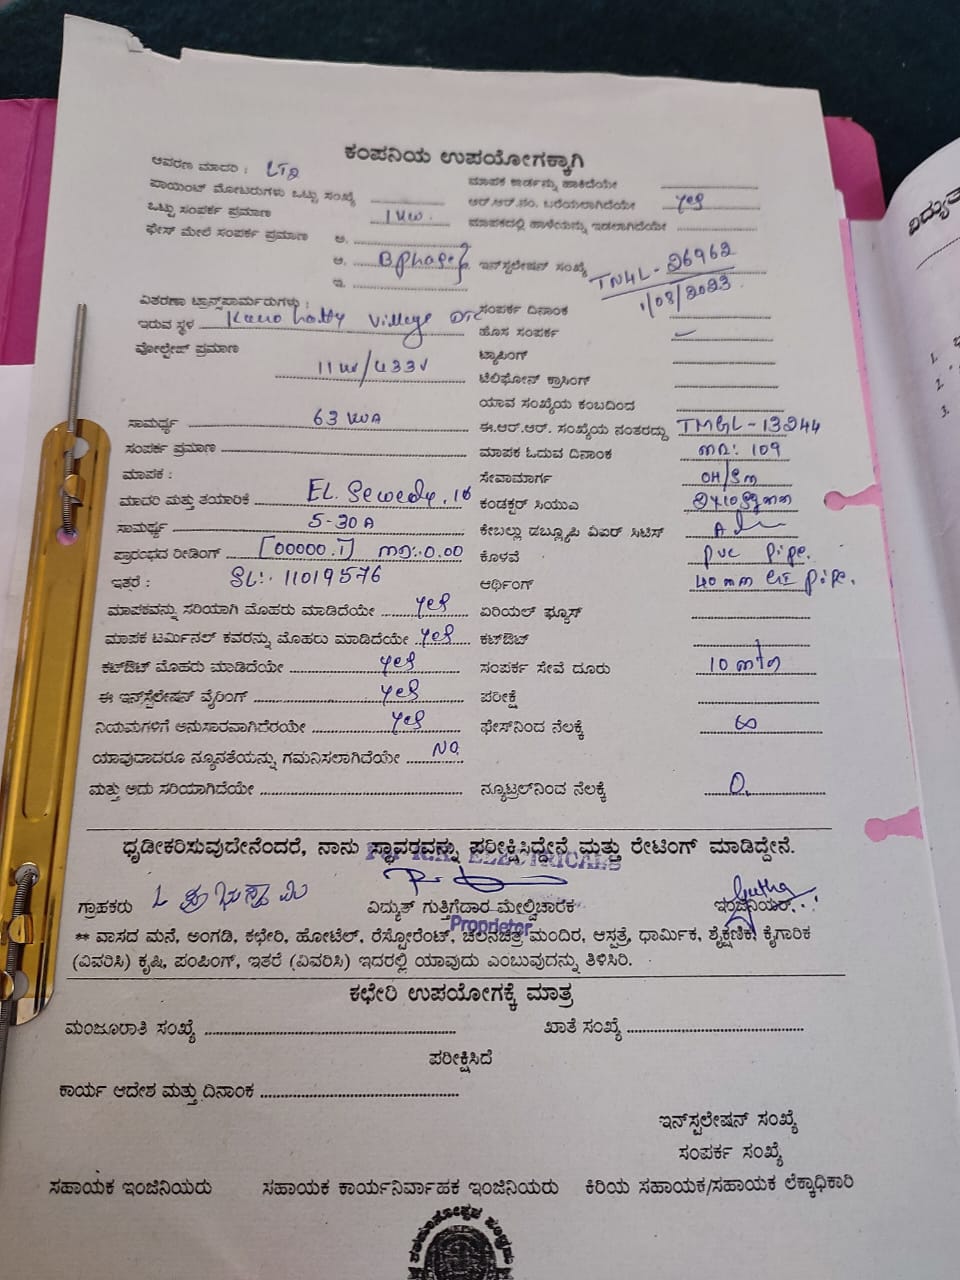 ಕಂಪನಿಯ ಉಪಯೋಗಕ್ಕಾಗಿ
ಆವರಣ ಮಾದರಿ : LT2 ಮಾಪಕ ಕಾರ್ಡನ್ನು ಹಾಕಿದೆಯೇ
ಪಾಯಿಂಟ್ ಮೋಟರುಗಳು ಒಟ್ಟು ಸಂಖ್ಯೆ ಆರ್.ಆರ್.ನಂ. ಬರೆಯಲಾಗಿದೆಯೇ yes
ಒಟ್ಟು ಸಂಪರ್ಕ ಪ್ರಮಾಣ 1kw. ಮಾಪಕದಲ್ಲಿ ಹಾಳೆಯನ್ನು ಇಡಲಾಗಿದೆಯೇ
ಫೇಸ್ ಮೇಲೆ ಸಂಪರ್ಕ ಪ್ರಮಾಣ ಅ.
ಆ. ಇನ್‌ಸ್ಟಲೇಷನ್ ಸಂಖ್ಯೆ 26962
ಇ.
ವಿತರಣಾ ಟ್ರಾನ್ಸ್‌ಫಾರ್ಮರುಗಳು : ಸಂಪರ್ಕ ದಿನಾಂಕ 1/08/2023
ಇರುವ ಸ್ಥಳ Village ಹೊಸ ಸಂಪರ್ಕ
ವೋಲ್ಟೇಜ್ ಪ್ರಮಾಣ ಟ್ಯಾಪಿಂಗ್
11kv/433v ಟೆಲಿಫೋನ್ ಕ್ರಾಸಿಂಗ್
ಯಾವ ಸಂಖ್ಯೆಯ ಕಂಬದಿಂದ
ಸಾಮರ್ಥ್ಯ 63 KVA ಈ.ಆರ್.ಆರ್. ಸಂಖ್ಯೆಯ ನಂತರದ್ದು
ಸಂಪರ್ಕ ಪ್ರಮಾಣ ಮಾಪಕ ಓದುವ ದಿನಾಂಕ 109
ಮಾಪಕ : ಸೇವಾಮಾರ್ಗ
ಮಾದರಿ ಮತ್ತು ತಯಾರಿಕೆ EL. Sewedy. ಕಂಡಕ್ಟರ್ ಸಿಯುಎ
ಸಾಮರ್ಥ್ಯ 5-30A ಕೇಬಲ್ಲು ಡಬ್ಲ್ಯೂಪಿ ವಿಐಆರ್ ಸಿಟಿಸ್
ಪ್ರಾರಂಭದ ರೀಡಿಂಗ್ [00000.1] 0.00 ಕೊಳವೆ PVC pipe.
ಇತರೆ : SL:. 11019576 ಆರ್ಥಿಂಗ್ 40mm GI pipe.
ಮಾಪಕವನ್ನು ಸರಿಯಾಗಿ ಮೊಹರು ಮಾಡಿದೆಯೇ yes ಏರಿಯಲ್ ಫ್ಯೂಸ್
ಮಾಪಕ ಟರ್ಮಿನಲ್ ಕವರನ್ನು ಮೊಹರು ಮಾಡಿದೆಯೇ yes ಕಟ್‌ಔಟ್
ಕಟ್‌ಔಟ್ ಮೊಹರು ಮಾಡಿದೆಯೇ yes ಸಂಪರ್ಕ ಸೇವೆ ದೂರು
ಈ ಇನ್‌ಸ್ಟೆಲೇಷನ್ ವೈರಿಂಗ್ yes ಪರೀಕ್ಷೆ
ನಿಯಮಗಳಿಗೆ ಅನುಸಾರವಾಗಿದೆರಯೇ yes ಫೇಸ್‌ನಿಂದ ನೆಲಕ್ಕೆ ∞
ಯಾವುದಾದರೂ ನ್ಯೂನತೆಯನ್ನು ಗಮನಿಸಲಾಗಿದೆಯೇ NO
ಮತ್ತು ಅದು ಸರಿಯಾಗಿದೆಯೇ ನ್ಯೂಟ್ರಲ್‌ನಿಂದ ನೆಲಕ್ಕೆ 0.
ಧೃಡೀಕರಿಸುವುದೇನೆಂದರೆ, ನಾನು ಸ್ಥಾವರವನ್ನು ಪರೀಕ್ಷಿಸಿದ್ದೇನೆ ಮತ್ತು ರೇಟಿಂಗ್ ಮಾಡಿದ್ದೇನೆ.
ELECTRICALS
ಗ್ರಾಹಕರು ವಿದ್ಯುತ್ ಗುತ್ತಿಗೆದಾರ ಮೇಲ್ವಿಚಾರಕ ಇಂಜಿನಿಯರ್
Proprietor
** ವಾಸದ ಮನೆ, ಅಂಗಡಿ, ಕಛೇರಿ, ಹೋಟೆಲ್, ರೆಸ್ಟೋರೆಂಟ್, ಚಲನಚಿತ್ರ ಮಂದಿರ, ಆಸ್ಪತ್ರೆ, ಧಾರ್ಮಿಕ, ಶೈಕ್ಷಣಿಕ, ಕೈಗಾರಿಕ
(ವಿವರಿಸಿ) ಕೃಷಿ, ಪಂಪಿಂಗ್, ಇತರೆ (ವಿವರಿಸಿ) ಇದರಲ್ಲಿ ಯಾವುದು ಎಂಬುವುದನ್ನು ತಿಳಿಸಿರಿ.
ಕಛೇರಿ ಉಪಯೋಗಕ್ಕೆ ಮಾತ್ರ
ಮಂಜೂರಾತಿ ಸಂಖ್ಯೆ ಖಾತೆ ಸಂಖ್ಯೆ
ಪರೀಕ್ಷಿಸಿದೆ
ಕಾರ್ಯ ಆದೇಶ ಮತ್ತು ದಿನಾಂಕ
ಇನ್‌ಸ್ಟಲೇಷನ್ ಸಂಖ್ಯೆ
ಸಂಪರ್ಕ ಸಂಖ್ಯೆ
ಸಹಾಯಕ ಇಂಜಿನಿಯರು ಸಹಾಯಕ ಕಾರ್ಯನಿರ್ವಾಹಕ ಇಂಜಿನಿಯರು ಕಿರಿಯ ಸಹಾಯಕ/ಸಹಾಯಕ ಲೆಕ್ಕಾಧಿಕಾರಿ